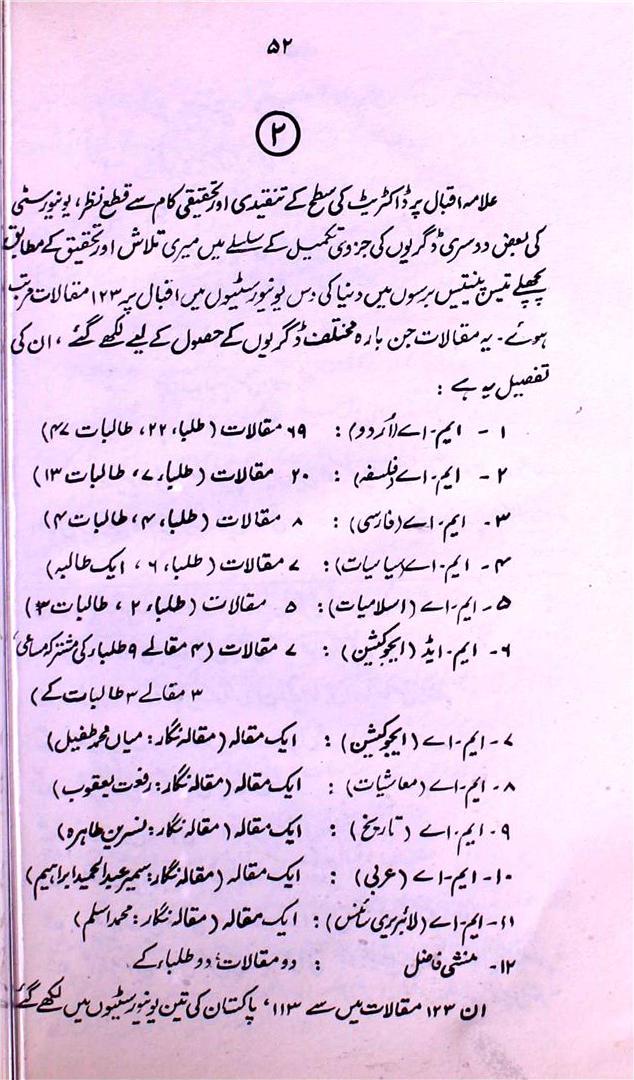 ۵۲
۲
علامہ اقبال پر ڈاکٹریٹ کی سطح کے تنقیدی اور تحقیقی کام سے قطع نظر، یونیورسٹی
کی بعض دوسری ڈگریوں کی جزوی تکمیل کے سلسلے میں میری تلاش اور تحقیق کے مطابق
پچھلے تیس پینتیس برسوں میں دنیا کی دس یونیورسٹیوں میں اقبال پر ۱۲۳ مقالات مرتب
ہوئے۔ یہ مقالات جن بارہ مختلف ڈگریوں کے حصول کے لیے لکھے گئے، ان کی
تفصیل یہ ہے :
۱ - ایم۔اے (اُردو) : ۶۹ مقالات (طلباء ۲۲، طالبات ۴۷)
۲ - ایم۔اے (فلسفہ) : ۲۰ مقالات (طلباء ۷، طالبات ۱۳)
۳۔ ایم۔اے (فارسی) : ۸ مقالات (طلباء ۴، طالبات ۴)
۴۔ ایم۔اے (سیاسیات) : ۷ مقالات (طلباء ۶، ایک طالبہ)
۵۔ ایم۔اے (اسلامیات) : ۵ مقالات (طلباء ۲، طالبات ۳)
۶۔ ایم۔ایڈ (ایجوکیشن) : ۷ مقالات (۴ مقالے ۹ طلباء کی مشترکہ مساعی،
۳ مقالے ۳ طالبات کے)
۷۔ ایم۔اے (ایجوکیشن) : ایک مقالہ (مقالہ نگار: میاں محمد طفیل)
۸۔ ایم۔اے (معاشیات) : ایک مقالہ (مقالہ نگار: رفعت یعقوب)
۹۔ ایم۔اے (تاریخ) : ایک مقالہ (مقالہ نگار: نسرین طاہرہ)
۱۰۔ ایم۔اے (عربی) : ایک مقالہ (مقالہ نگار: سمیر عبدالحمید ابراہیم)
۱۱۔ ایم۔اے (لائبریری سائنس) : ایک مقالہ (مقالہ نگار: محمد اسلم)
۱۲۔ منشی فاضل : دو مقالات، دو طلباء کے۔
ان ۱۲۳ مقالات میں سے ۱۱۳، پاکستان کی تین یونیورسٹیوں میں لکھے گئے